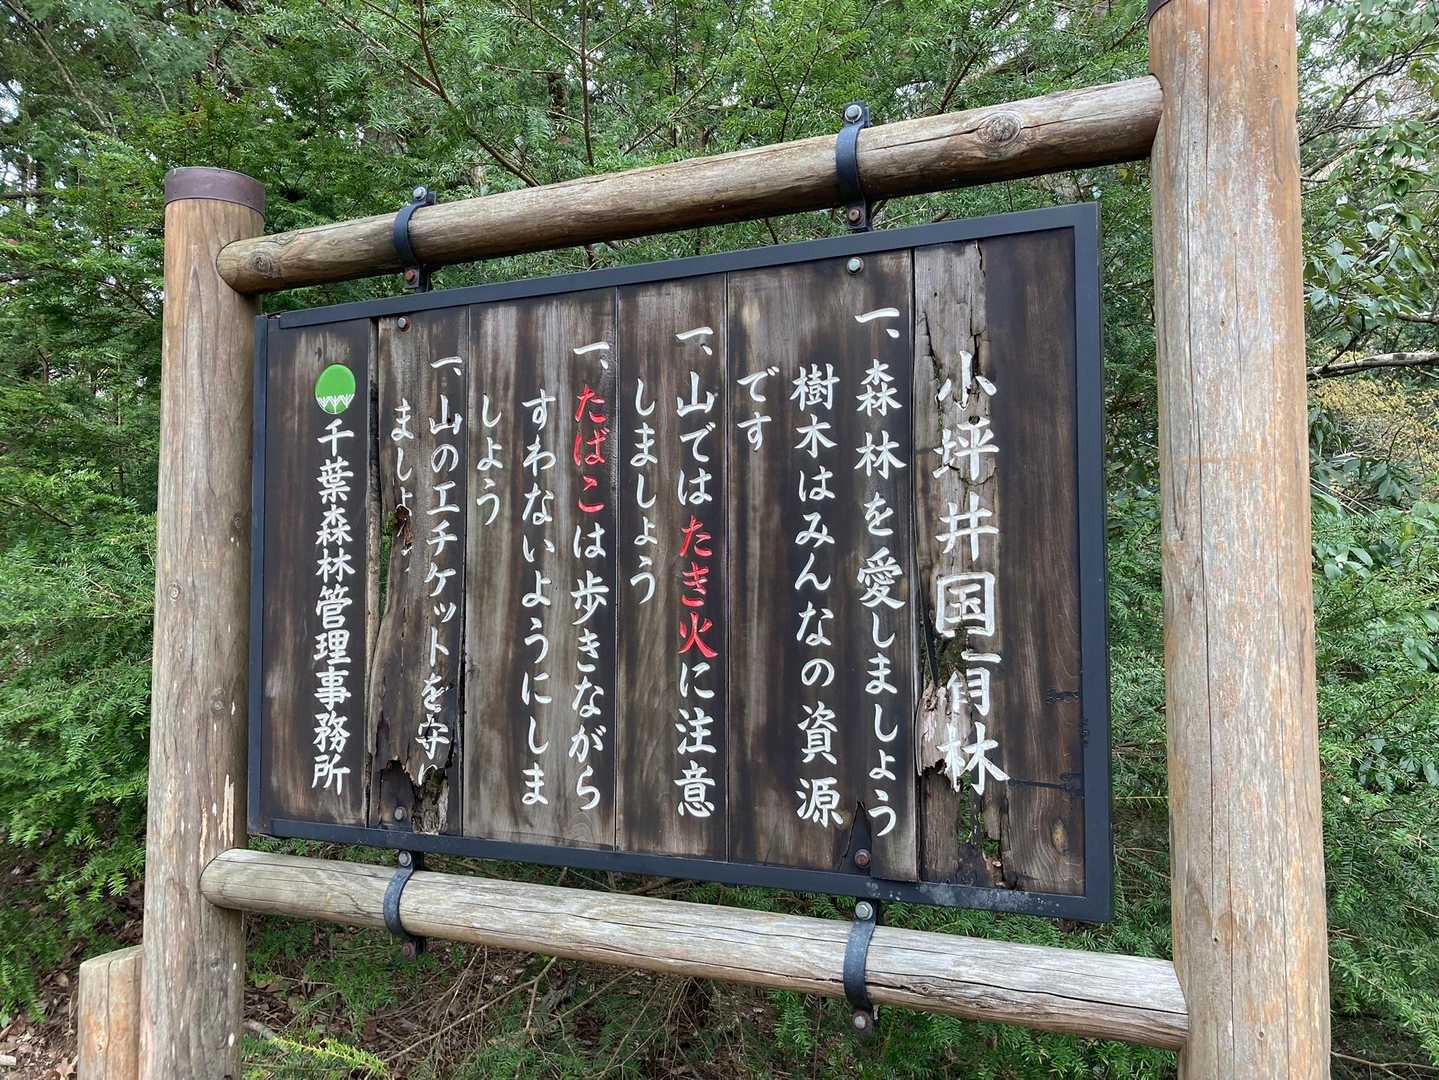 小坪井国有林
一、森林を愛しましょう
樹木はみんなの資源
です
一、山ではたき火に注意
しましょう
一、たばこは歩きながら
すわないようにしま
しょう
一、山のエチケットを守り
ましょ
千葉森林管理事務所